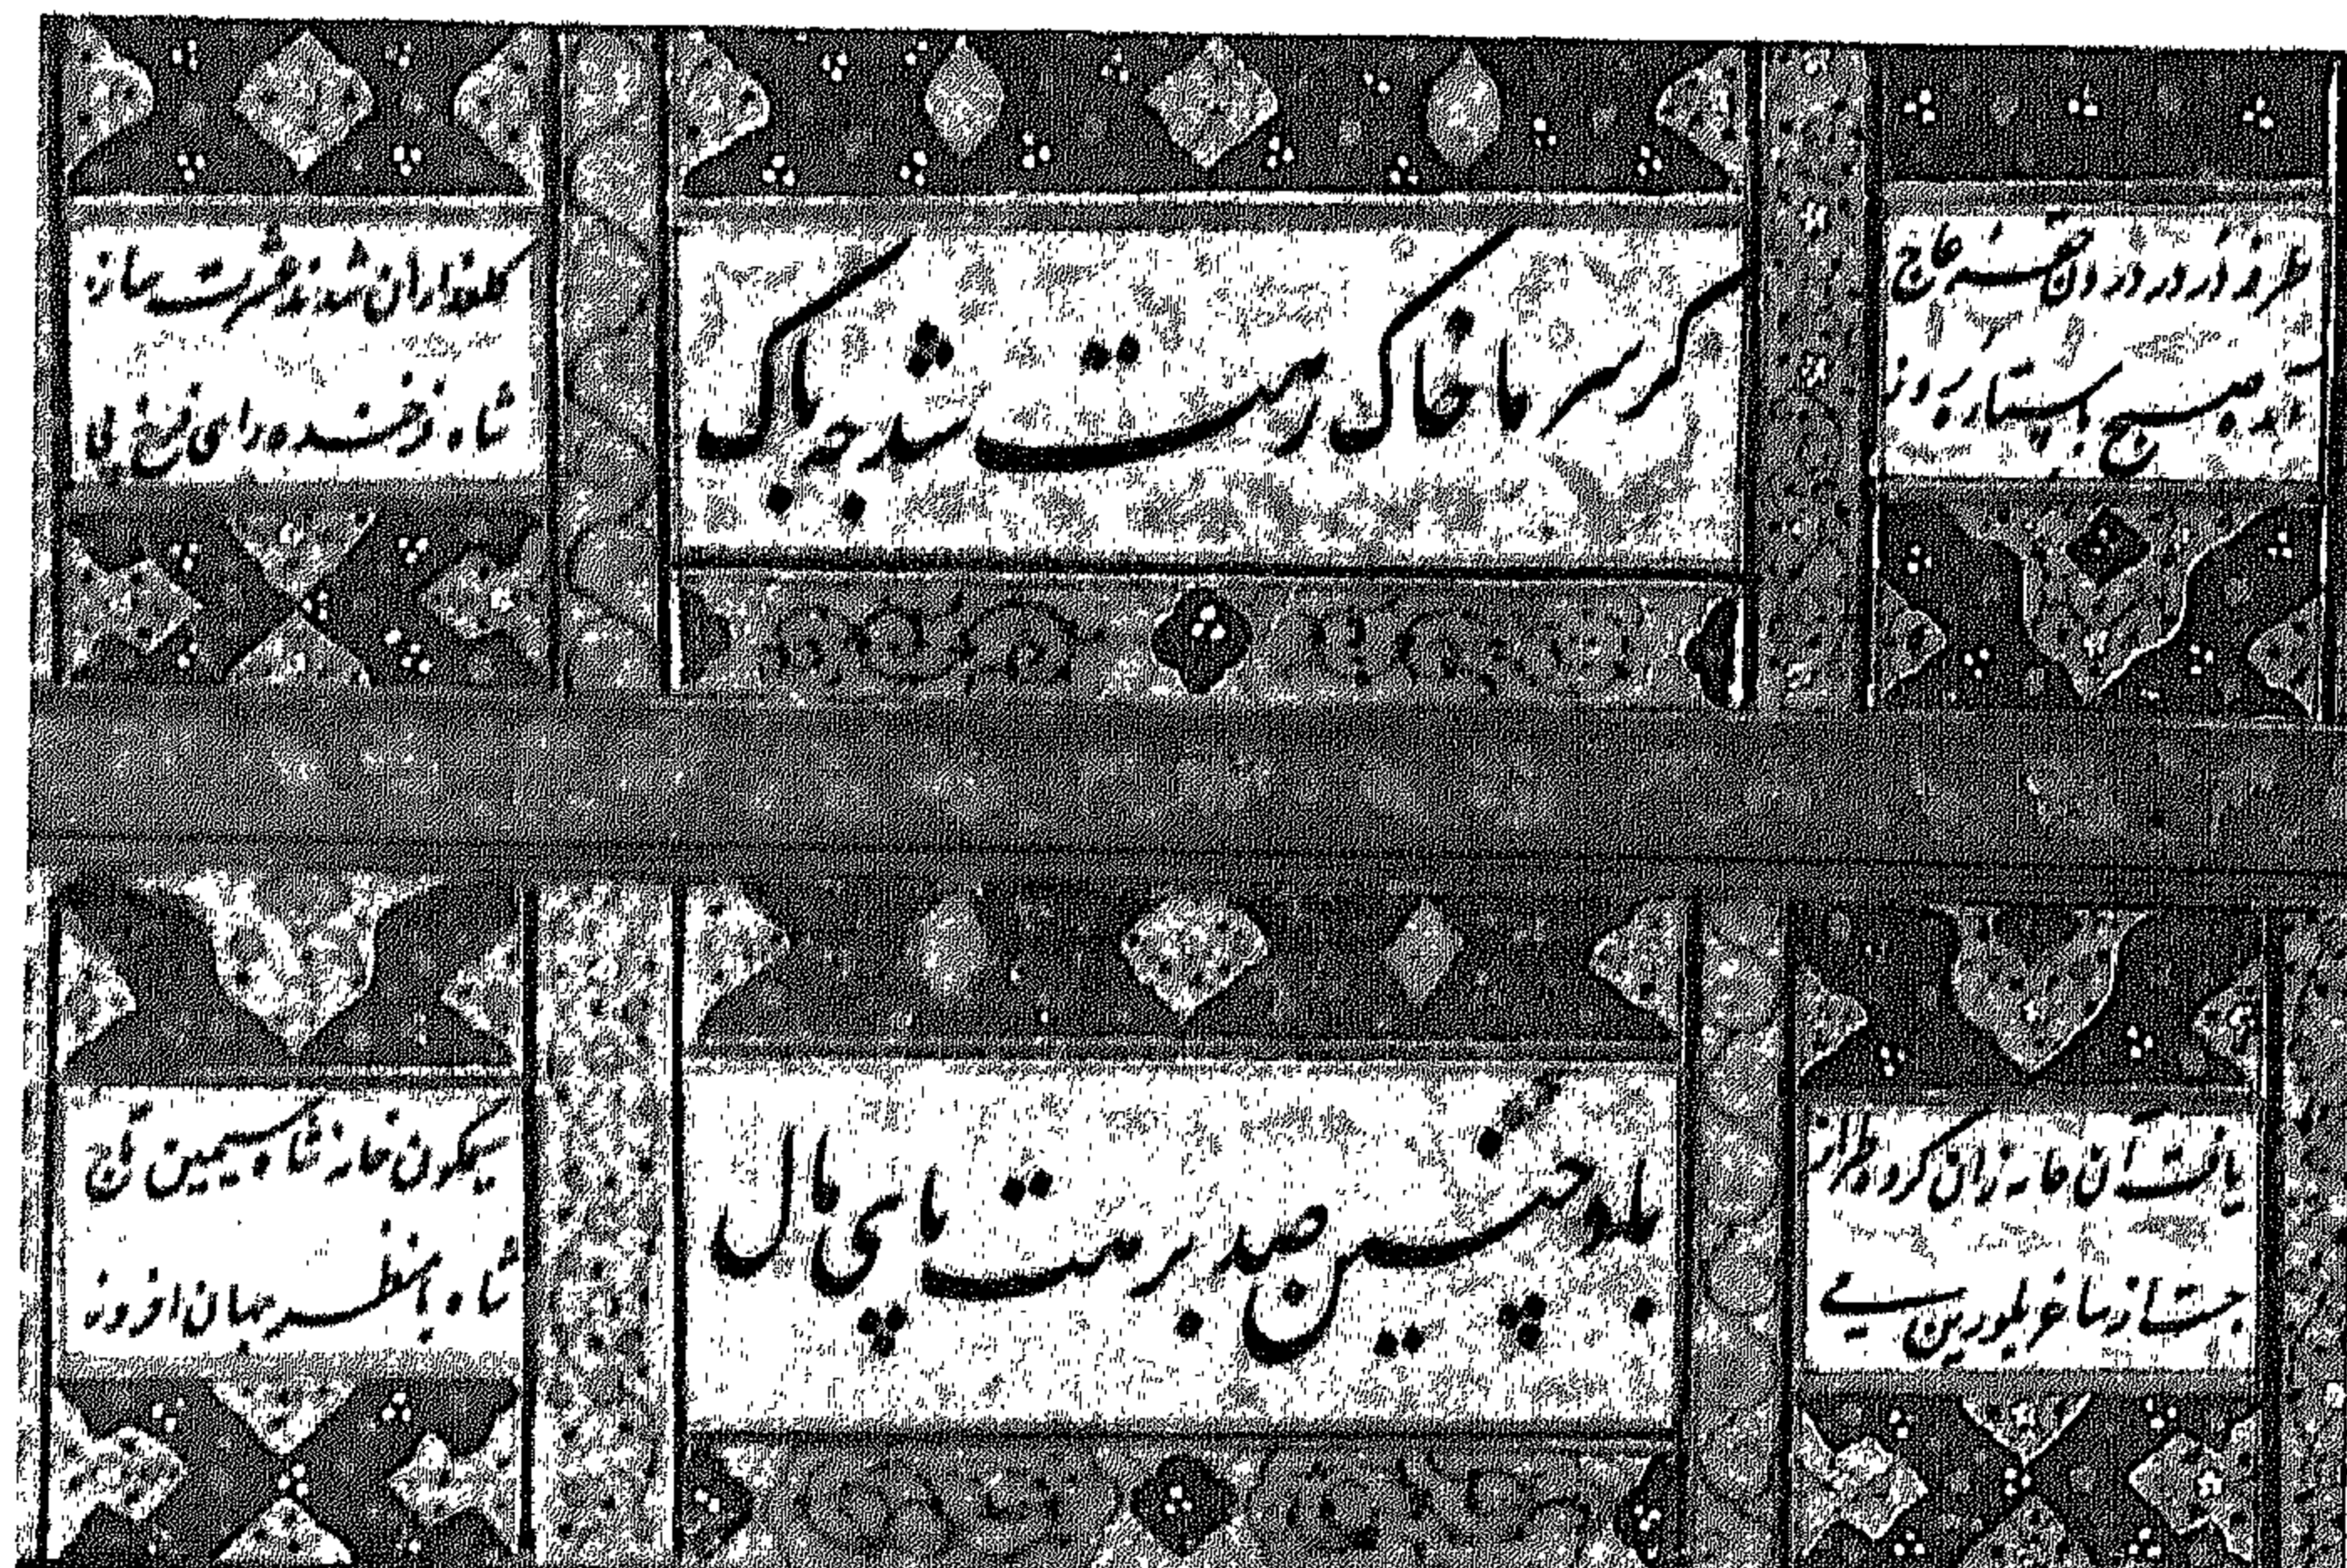 طرفه درون حقه عاج
صبح با ستاره
گر سر ما خاک رهت شد چه باک
گلعذاران شدند عشرت ساز
شاه فرخنده رای فرخ پی
یافت آن خانه زان گروه طراز
جست از ساغر بلورین می
باد چنین صد برهت پای مال
سیمگون خانه شاه سیمین تاج
شاه با منظر جهان افروز